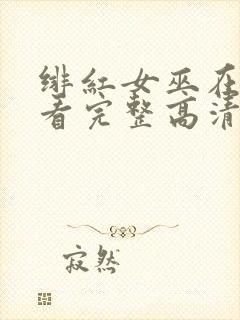 绯红女巫在
看完整高清
寂然